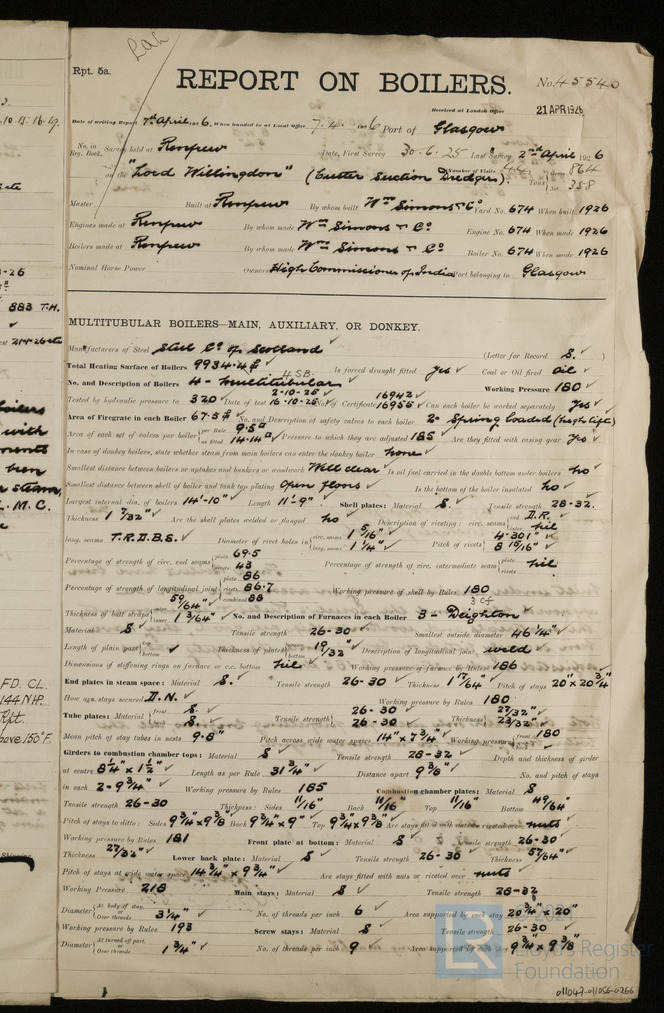 Lah
Rpt. 5a.
REPORT ON BOILERS.
No. 45540
Received at London Office
21 APR 1926
Date of writing Report 7th April 1926. When handed in at Local Office 7.4.1926 Port of Glasgow
No. in Reg. Book. Survey held at Renfrew Date, First Survey 30-6-25 Last Survey 2nd April 1926
on the "Lord Willingdon" (Cutter Suction Dredger). Number of Visits 44 Gross 864
Tons Net 358
Master Built at Renfrew By whom built Wm Simons & Co Yard No. 674 When built 1926
Engines made at Renfrew By whom made Wm Simons & Co Engine No. 674 When made 1926
Boilers made at Renfrew By whom made Wm Simons & Co Boiler No. 674 When made 1926
Nominal Horse Power Owners High Commissioner of India Port belonging to Glasgow
MULTITUBULAR BOILERS—MAIN, AUXILIARY, OR DONKEY.
Manufacturers of Steel Steel Co of Scotland (Letter for Record S. )
Total Heating Surface of Boilers 9934.4 Is forced draught fitted yes Coal or Oil fired oil
No. and Description of Boilers 4 - multitubular 4 SB Working Pressure 180
Tested by hydraulic pressure to 320 Date of test 2-10-25 16-10-25 No. of Certificate 16942 16955 Can each boiler be worked separately yes
Area of Firegrate in each Boiler 67.5 No. and Description of safety valves to each boiler 2 - Spring loaded (high lift)
Area of each set of valves per boiler per Rule 9.5 as fitted 14.14 Pressure to which they are adjusted 185 Are they fitted with easing gear yes
In case of donkey boilers, state whether steam from main boilers can enter the donkey boiler none
Smallest distance between boilers or uptakes and bunkers or woodwork Well clear Is oil fuel carried in the double bottom under boilers no
Smallest distance between shell of boiler and tank top plating open floors Is the bottom of the boiler insulated no
Largest internal dia. of boilers 14'-10" Length 11'-9" Shell plates: Material S. Tensile strength 28-32.
Thickness 1 7/32" Are the shell plates welded or flanged no Description of riveting: circ. seams end D.R. inter. nil
long. seams T.R.D.B.S. Diameter of rivet holes in circ. seams 1 5/16" long. seams 1 1/4" Pitch of rivets 4.301" 8 15/16"
Percentage of strength of circ. end seams plate 69.5 rivets 43 Percentage of strength of circ. intermediate seam plate rivets nil
Percentage of strength of longitudinal joint plate 86 rivets 86.7 combined 88 Working pressure of shell by Rules 180
Thickness of butt straps outer 59/64" inner 1 3/64" No. and Description of Furnaces in each Boiler 3 - Deighton 3 cf
Material S Tensile strength 26-30 Smallest outside diameter 46 1/4"
Length of plain part top bottom Thickness of plates crown bottom 19/32" Description of longitudinal joint weld
Dimensions of stiffening rings on furnace or c.c. bottom nil Working pressure of furnace by Rules 186
End plates in steam space: Material S. Tensile strength 26-30 Thickness 1 17/64" Pitch of stays 20" x 20 3/4"
How are stays secured D.N. Working pressure by Rules 180
Tube plates: Material front S. back S. Tensile strength 26-30 26-30 Thickness 27/32" 23/32"
Mean pitch of stay tubes in nests 9.8" Pitch across wide water spaces 14" x 7 3/4" Working pressure front 180 back
Girders to combustion chamber tops: Material S Tensile strength 28-32 Depth and thickness of girder
at centre 8 1/4" x 1 1/2" Length as per Rule 31 3/4" Distance apart 9 3/8" No. and pitch of stays
in each 2-9 3/4" Working pressure by Rules 185 Combustion chamber plates: Material S
Tensile strength 26-30 Thickness: Sides 11/16" Back 11/16" Top 11/16" Bottom 49/64"
Pitch of stays to ditto: Sides 9 3/4" x 9 3/8 Back 9 3/4" x 9" Top 9 3/4" x 9 3/8 Are stays fitted with nuts or riveted over nuts
Working pressure by Rules 181 Front plate at bottom: Material S Tensile strength 26-30
Thickness 27/32" Lower back plate: Material S Tensile strength 26-30 Thickness 57/64"
Pitch of stays at wide water space 14 3/4" x 9 3/4" Are stays fitted with nuts or riveted over nuts
Working Pressure 218 Main stays: Material S Tensile strength 28-32
Diameter At body of stay, or Over threads 3 1/4" No. of threads per inch 6 Area supported by each stay 20 3/4" x 20"
Working pressure by Rules 193 Screw stays: Material S Tensile strength 26-30
Diameter At turned off part, or Over threads 1 3/4" No. of threads per inch 9 Area supported by each stay 9 3/4" x 9 3/8"
Lloyd's Register
Foundation
011047-011056-0266
10-15-16-19.
-26
883 T.H.
boilers
with
been
steam,
L.M.C.
FD. CL.
144 NHP.
Rpt.
above 150°F.